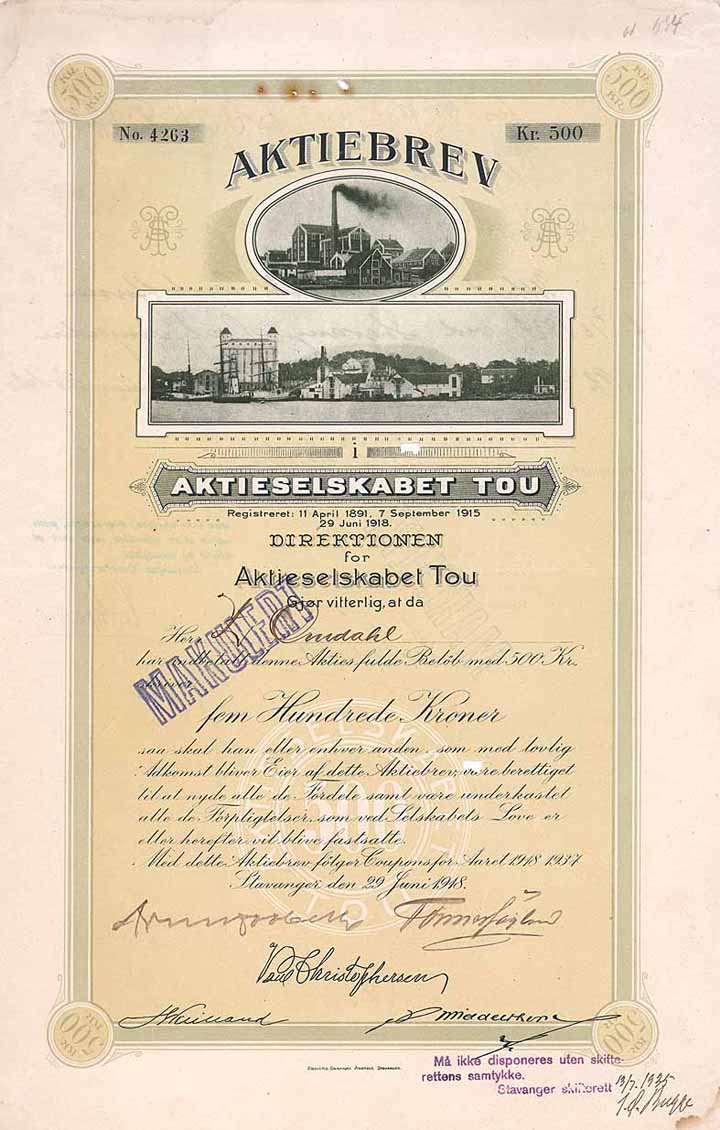 500
KR.
KR.
500
KR.
No. 4263
Kr. 500
AKTIEBREV
i
AKTIESELSKABET TOU
Registreret: 11 April 1891, 7 September 1915
29 Juni 1918.
DIREKTIONEN
for
Aktieselskabet Tou
Gjør vitterlig, at da
Herr
MAKULERT
har indbetalt denne Akties fulde Beløb med 500 Kr.
fem Hundrede Kroner
saa skal han eller enhver anden, som med lovlig
Adkomst bliver Eier af dette Aktiebrev, være berettiget
til at nyde alle de Fordele samt være underkastet
alle de Forpligtelser, som ved Selskabets Love er
eller herefter vil blive fastsatte.
Med dette Aktiebrev følger Coupons for Aaret 1918-1937
Stavanger den 29 Juni 1918.
Christophersen
Kielland
Middelthon
500
KR.
500
Må ikke disponeres uten skifte-
rettens samtykke.
Stavanger skifterett
13/7 1935